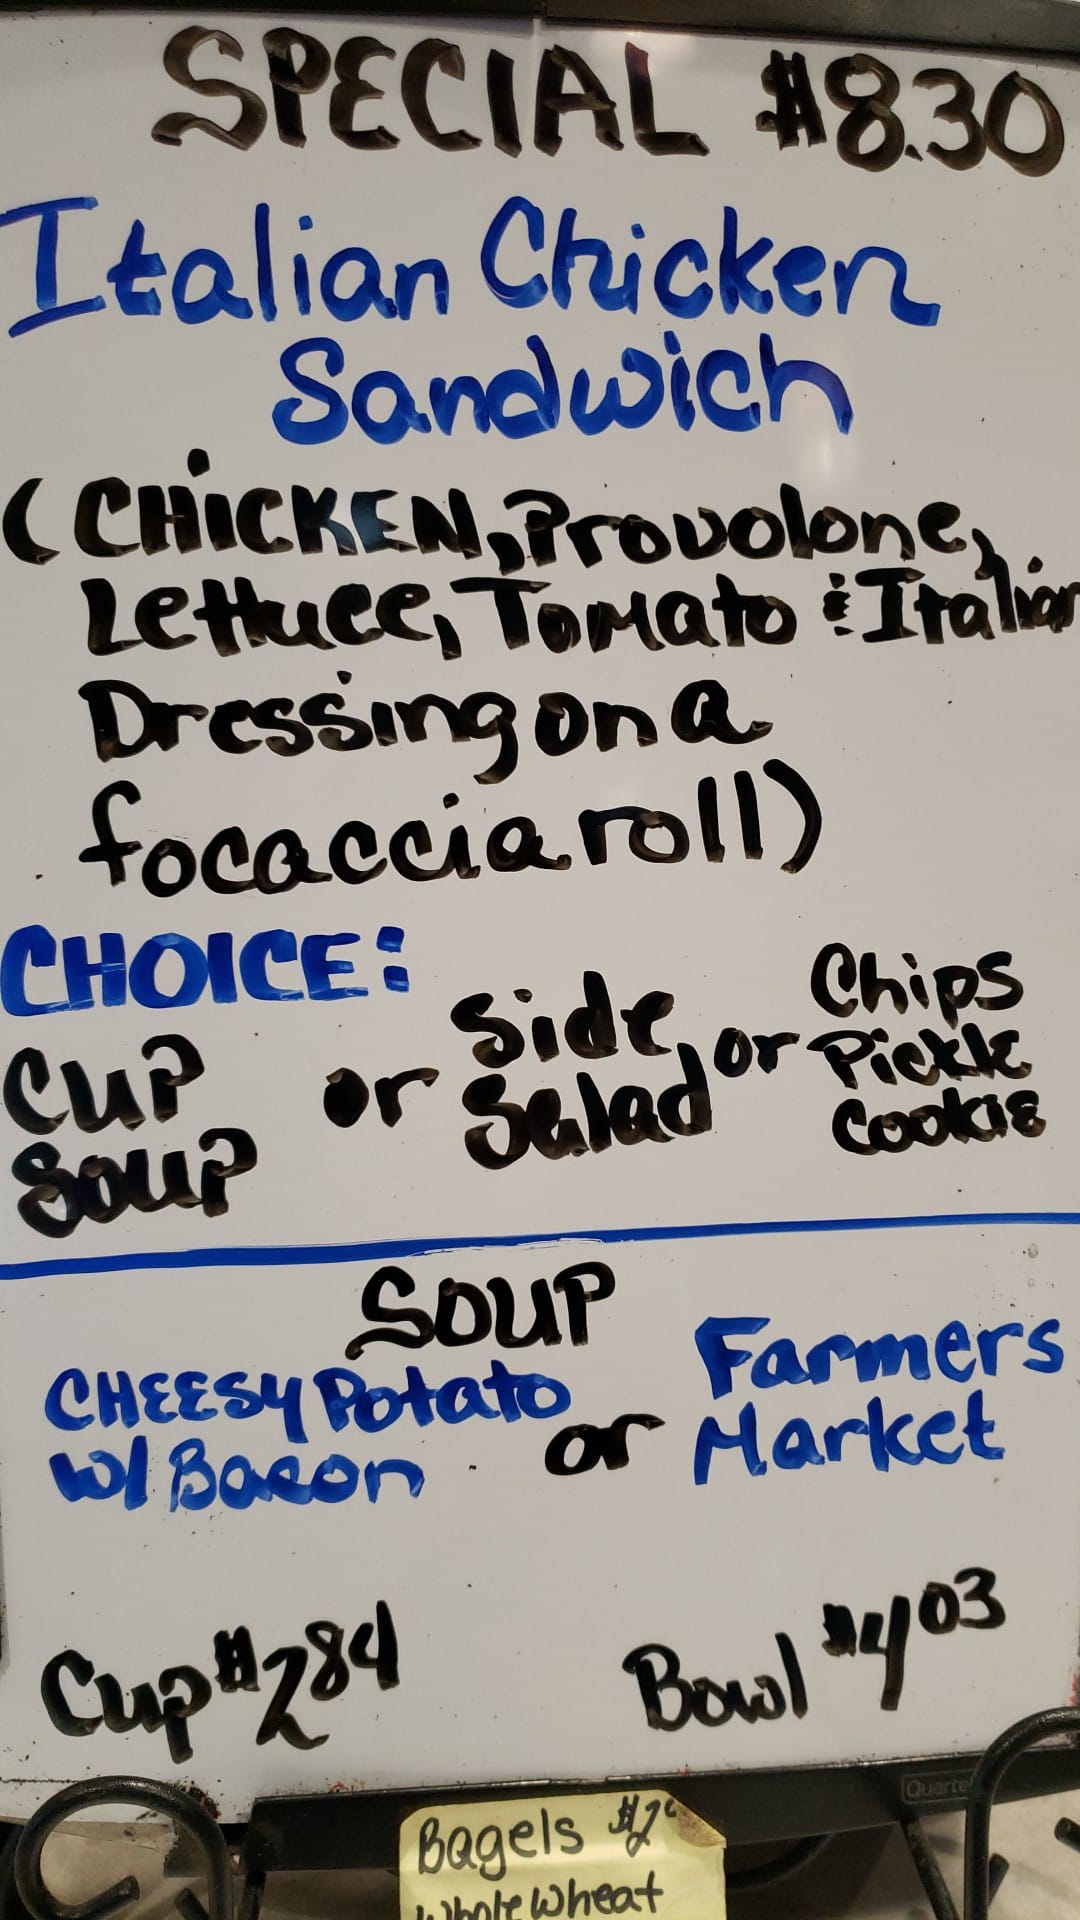 SPECIAL $8.30
Italian Chicken
Sandwich
(CHICKEN, Provolone,
Lettuce, Tomato & Italian
Dressing on a
focaccia roll)
CHOICE:
Cup
Soup
or
Side
Salad
or
Chips
Pickle
Cookie
SOUP
CHEESY Potato
w/ Bacon
or
Farmers
Market
Cup $2.84
Bowl $4.03
Quarte
Bagels
Whole Wheat